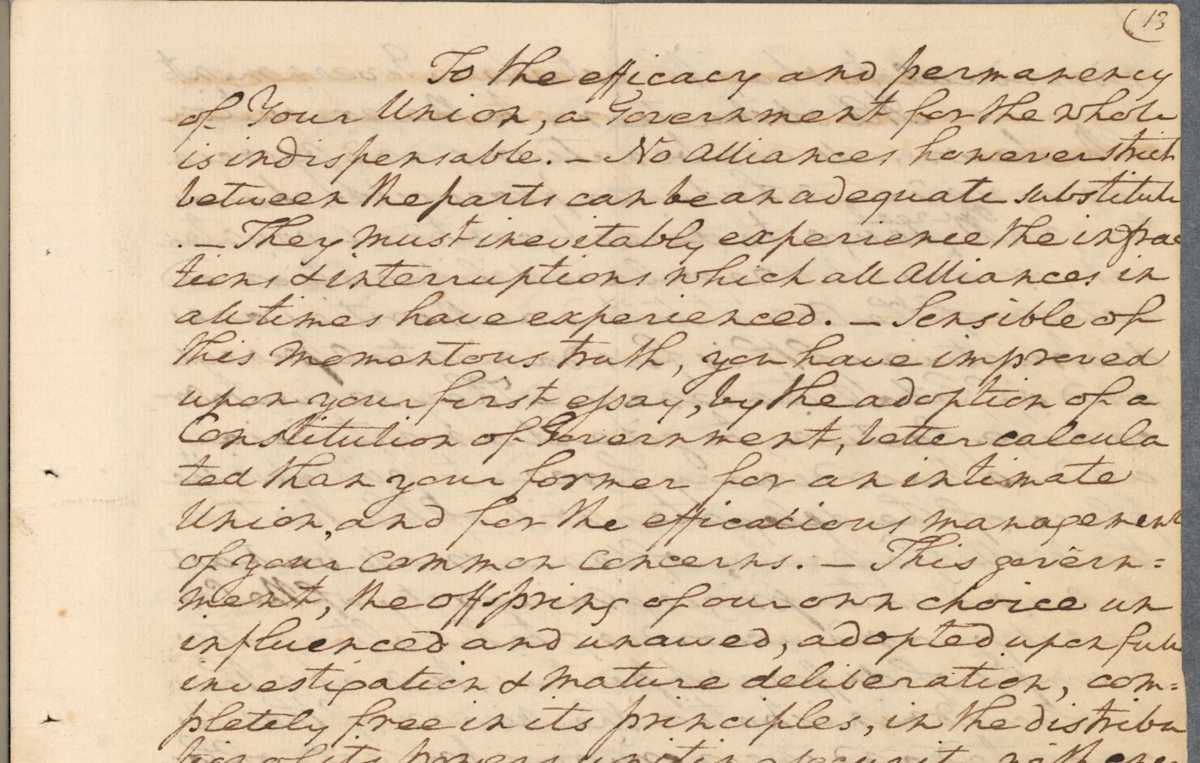 13
To the efficacy and permanency
of Your Union, a Government for the whole
is indispensable. – No Alliances however strict
between the parts can be an adequate substitute
. – They must inevitably experience the infrac
tions & interruptions which all Alliances in
all times have experienced. – Sensible of
this momentous truth, you have improved
upon your first essay, by the adoption of a
Constitution of Government, better calcula
ted than your former for an intimate
Union, and for the efficacious management
of your common concerns. – This govern=
ment, the offspring of our own choice un
influenced and unawed, adopted upon full
investigation & mature deliberation, com=
pletely free in its principles, in the distribu
tion of its powers, uniting security with ener